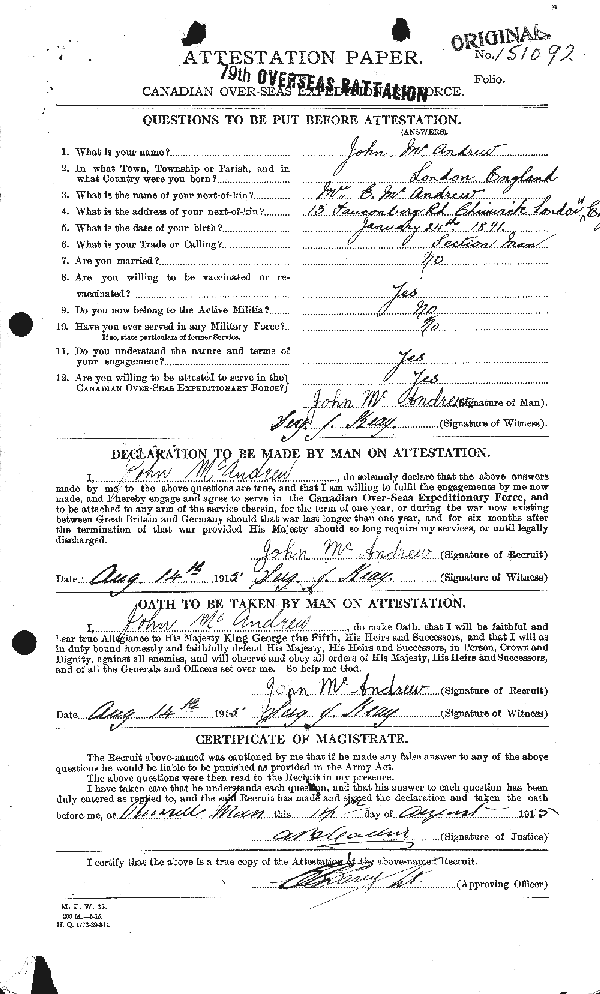 ORIGINAL
ATTESTATION PAPER.
No. 151092
79th OVERSEAS BATTALION
Folio.
CANADIAN OVER-SEAS EXPEDITIONARY FORCE.
QUESTIONS TO BE PUT BEFORE ATTESTATION.
(ANSWERS).
1. What is your name? John McAndrew
2. In what Town, Township or Parish, and in
what Country were you born? London England
3. What is the name of your next-of-kin? Mr E. McAndrew
4. What is the address of your next-of-kin? 13 Rd. London
5. What is the date of your birth? January 24th 1891.
6. What is your Trade or Calling? Section Man
7. Are you married? No
8. Are you willing to be vaccinated or re-
vaccinated? Yes
9. Do you now belong to the Active Militia? No
10. Have you ever served in any Military Force? No
If so, state particulars of former Service.
11. Do you understand the nature and terms of
your engagement? Yes
12. Are you willing to be attested to serve in the
CANADIAN OVER-SEAS EXPEDITIONARY FORCE? Yes
John McAndrew (Signature of Man).
J. (Signature of Witness).
DECLARATION TO BE MADE BY MAN ON ATTESTATION.
I, John McAndrew, do solemnly declare that the above answers
made by me to the above questions are true, and that I am willing to fulfil the engagements by me now
made, and I hereby engage and agree to serve in the Canadian Over-Seas Expeditionary Force, and
to be attached to any arm of the service therein, for the term of one year, or during the war now existing
between Great Britain and Germany should that war last longer than one year, and for six months after
the termination of that war provided His Majesty should so long require my services, or until legally
discharged.
John McAndrew (Signature of Recruit)
Date Aug 14th 1915 J. (Signature of Witness)
OATH TO BE TAKEN BY MAN ON ATTESTATION.
I, John McAndrew, do make Oath, that I will be faithful and
bear true Allegiance to His Majesty King George the Fifth, His Heirs and Successors, and that I will as
in duty bound honestly and faithfully defend His Majesty, His Heirs and Successors, in Person, Crown and
Dignity, against all enemies, and will observe and obey all orders of His Majesty, His Heirs and Successors,
and of all the Generals and Officers set over me. So help me God.
John McAndrew (Signature of Recruit)
Date Aug 14th 1915 J. (Signature of Witness)
CERTIFICATE OF MAGISTRATE.
The Recruit above-named was cautioned by me that if he made any false answer to any of the above
questions he would be liable to be punished as provided in the Army Act.
The above questions were then read to the Recruit in my presence.
I have taken care that he understands each question, and that his answer to each question has been
duly entered as replied to, and the said Recruit has made and signed the declaration and taken the oath
before me, at Man this 14th day of August 1915
(Signature of Justice)
I certify that the above is a true copy of the Attestation of the above-named Recruit.
(Approving Officer)
M. F. W. 23.
H. Q. 1772-39-841.